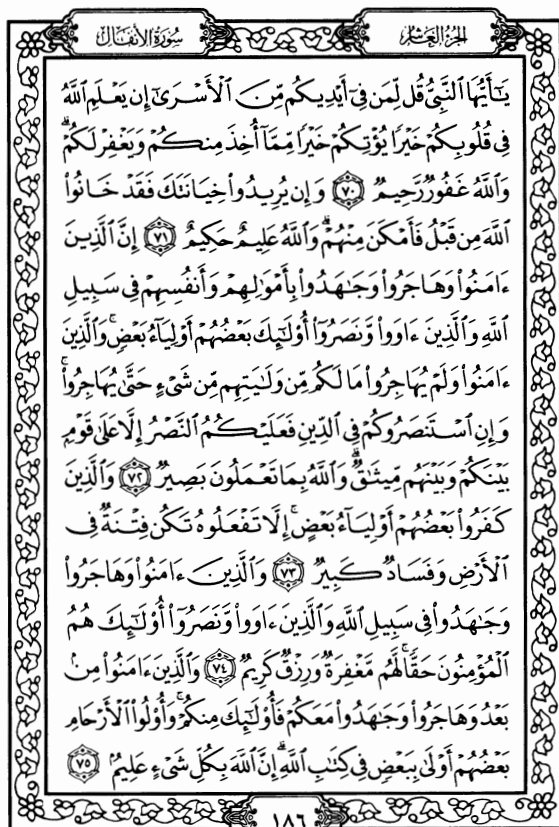 الجزء العاشر
سورة الأنفال
يَـٰٓأَيُّهَا ٱلنَّبِىُّ قُل لِّمَن فِىٓ أَيْدِيكُم مِّنَ ٱلْأَسْرَىٰٓ إِن يَعْلَمِ ٱللَّهُ
فِى قُلُوبِكُمْ خَيْرًا يُؤْتِكُمْ خَيْرًا مِّمَّآ أُخِذَ مِنكُمْ وَيَغْفِرْ لَكُمْ ۗ
وَٱللَّهُ غَفُورٌ رَّحِيمٌ ٧٠ وَإِن يُرِيدُوا۟ خِيَانَتَكَ فَقَدْ خَانُوا۟
ٱللَّهَ مِن قَبْلُ فَأَمْكَنَ مِنْهُمْ ۗ وَٱللَّهُ عَلِيمٌ حَكِيمٌ ٧١ إِنَّ ٱلَّذِينَ
ءَامَنُوا۟ وَهَاجَرُوا۟ وَجَـٰهَدُوا۟ بِأَمْوَٰلِهِمْ وَأَنفُسِهِمْ فِى سَبِيلِ
ٱللَّهِ وَٱلَّذِينَ ءَاوَوا۟ وَّنَصَرُوٓا۟ أُو۟لَـٰٓئِكَ بَعْضُهُمْ أَوْلِيَآءُ بَعْضٍ ۚ وَٱلَّذِينَ
ءَامَنُوا۟ وَلَمْ يُهَاجِرُوا۟ مَا لَكُم مِّن وَلَـٰيَتِهِم مِّن شَىْءٍ حَتَّىٰ يُهَاجِرُوا۟ ۚ
وَإِنِ ٱسْتَنصَرُوكُمْ فِى ٱلدِّينِ فَعَلَيْكُمُ ٱلنَّصْرُ إِلَّا عَلَىٰ قَوْمٍ
بَيْنَكُمْ وَبَيْنَهُم مِّيثَـٰقٌ ۗ وَٱللَّهُ بِمَا تَعْمَلُونَ بَصِيرٌ ٧٢ وَٱلَّذِينَ
كَفَرُوا۟ بَعْضُهُمْ أَوْلِيَآءُ بَعْضٍ ۚ إِلَّا تَفْعَلُوهُ تَكُن فِتْنَةٌ فِى
ٱلْأَرْضِ وَفَسَادٌ كَبِيرٌ ٧٣ وَٱلَّذِينَ ءَامَنُوا۟ وَهَاجَرُوا۟
وَجَـٰهَدُوا۟ فِى سَبِيلِ ٱللَّهِ وَٱلَّذِينَ ءَاوَوا۟ وَّنَصَرُوٓا۟ أُو۟لَـٰٓئِكَ هُمُ
ٱلْمُؤْمِنُونَ حَقًّا ۚ لَّهُم مَّغْفِرَةٌ وَرِزْقٌ كَرِيمٌ ٧٤ وَٱلَّذِينَ ءَامَنُوا۟ مِنۢ
بَعْدُ وَهَاجَرُوا۟ وَجَـٰهَدُوا۟ مَعَكُمْ فَأُو۟لَـٰٓئِكَ مِنكُمْ ۚ وَأُو۟لُوا۟ ٱلْأَرْحَامِ
بَعْضُهُمْ أَوْلَىٰ بِبَعْضٍ فِى كِتَـٰبِ ٱللَّهِ ۗ إِنَّ ٱللَّهَ بِكُلِّ شَىْءٍ عَلِيمٌۢ ٧٥
١٨٦